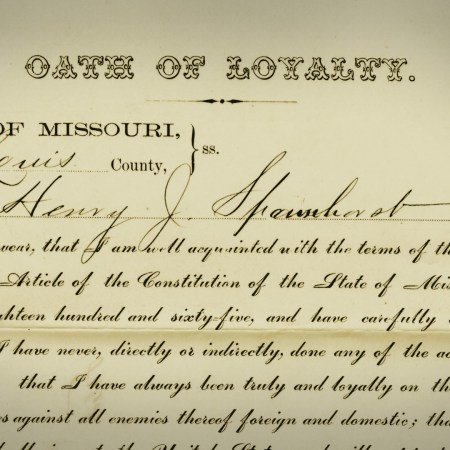 OATH OF LOYALTY.
OF MISSOURI,
ss.
ouis County,
Henry J. Spaunhorst
wear, that I am well acquainted with the terms of th
Article of the Constitution of the State of Mis
ghteen hundred and sixty-five, and have carefully
I have never, directly or indirectly, done any of the ac
that I have always been truly and loyally on th
s against all enemies thereof foreign and domestic; tha